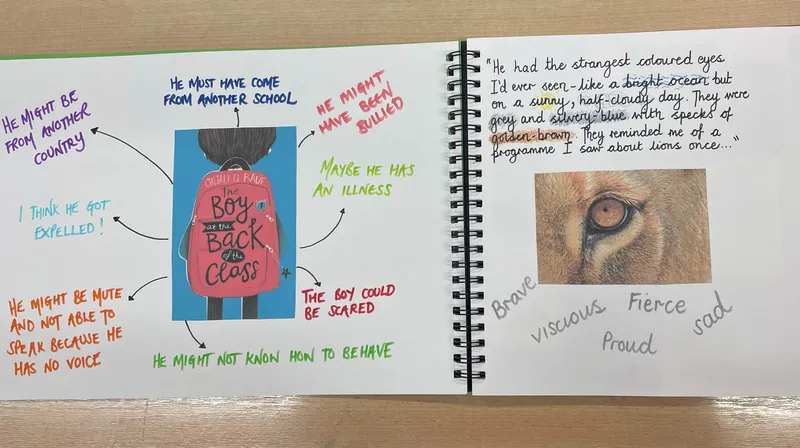 HE MUST HAVE COME
FROM ANOTHER SCHOOL
HE MIGHT
HAVE BEEN
BULLIED
HE MIGHT BE
FROM ANOTHER
COUNTRY
MAYBE HE HAS
AN ILLNESS
I THINK HE GOT
EXPELLED!
ONJALI Q. RAUF
The
Boy
at the
Back
of the
Class
HE MIGHT BE MUTE
AND NOT ABLE TO
SPEAK BECAUSE HE
HAS NO VOICE
THE BOY COULD
BE SCARED
HE MIGHT NOT KNOW HOW TO BEHAVE
"He had the strangest coloured eyes
I'd ever seen - like a bright ocean but
on a sunny, half-cloudy day. They were
grey and silvery-blue with specks of
golden-brown. They reminded me of a
programme I saw about lions once..."
Brave
viscious
Fierce
Proud
sad